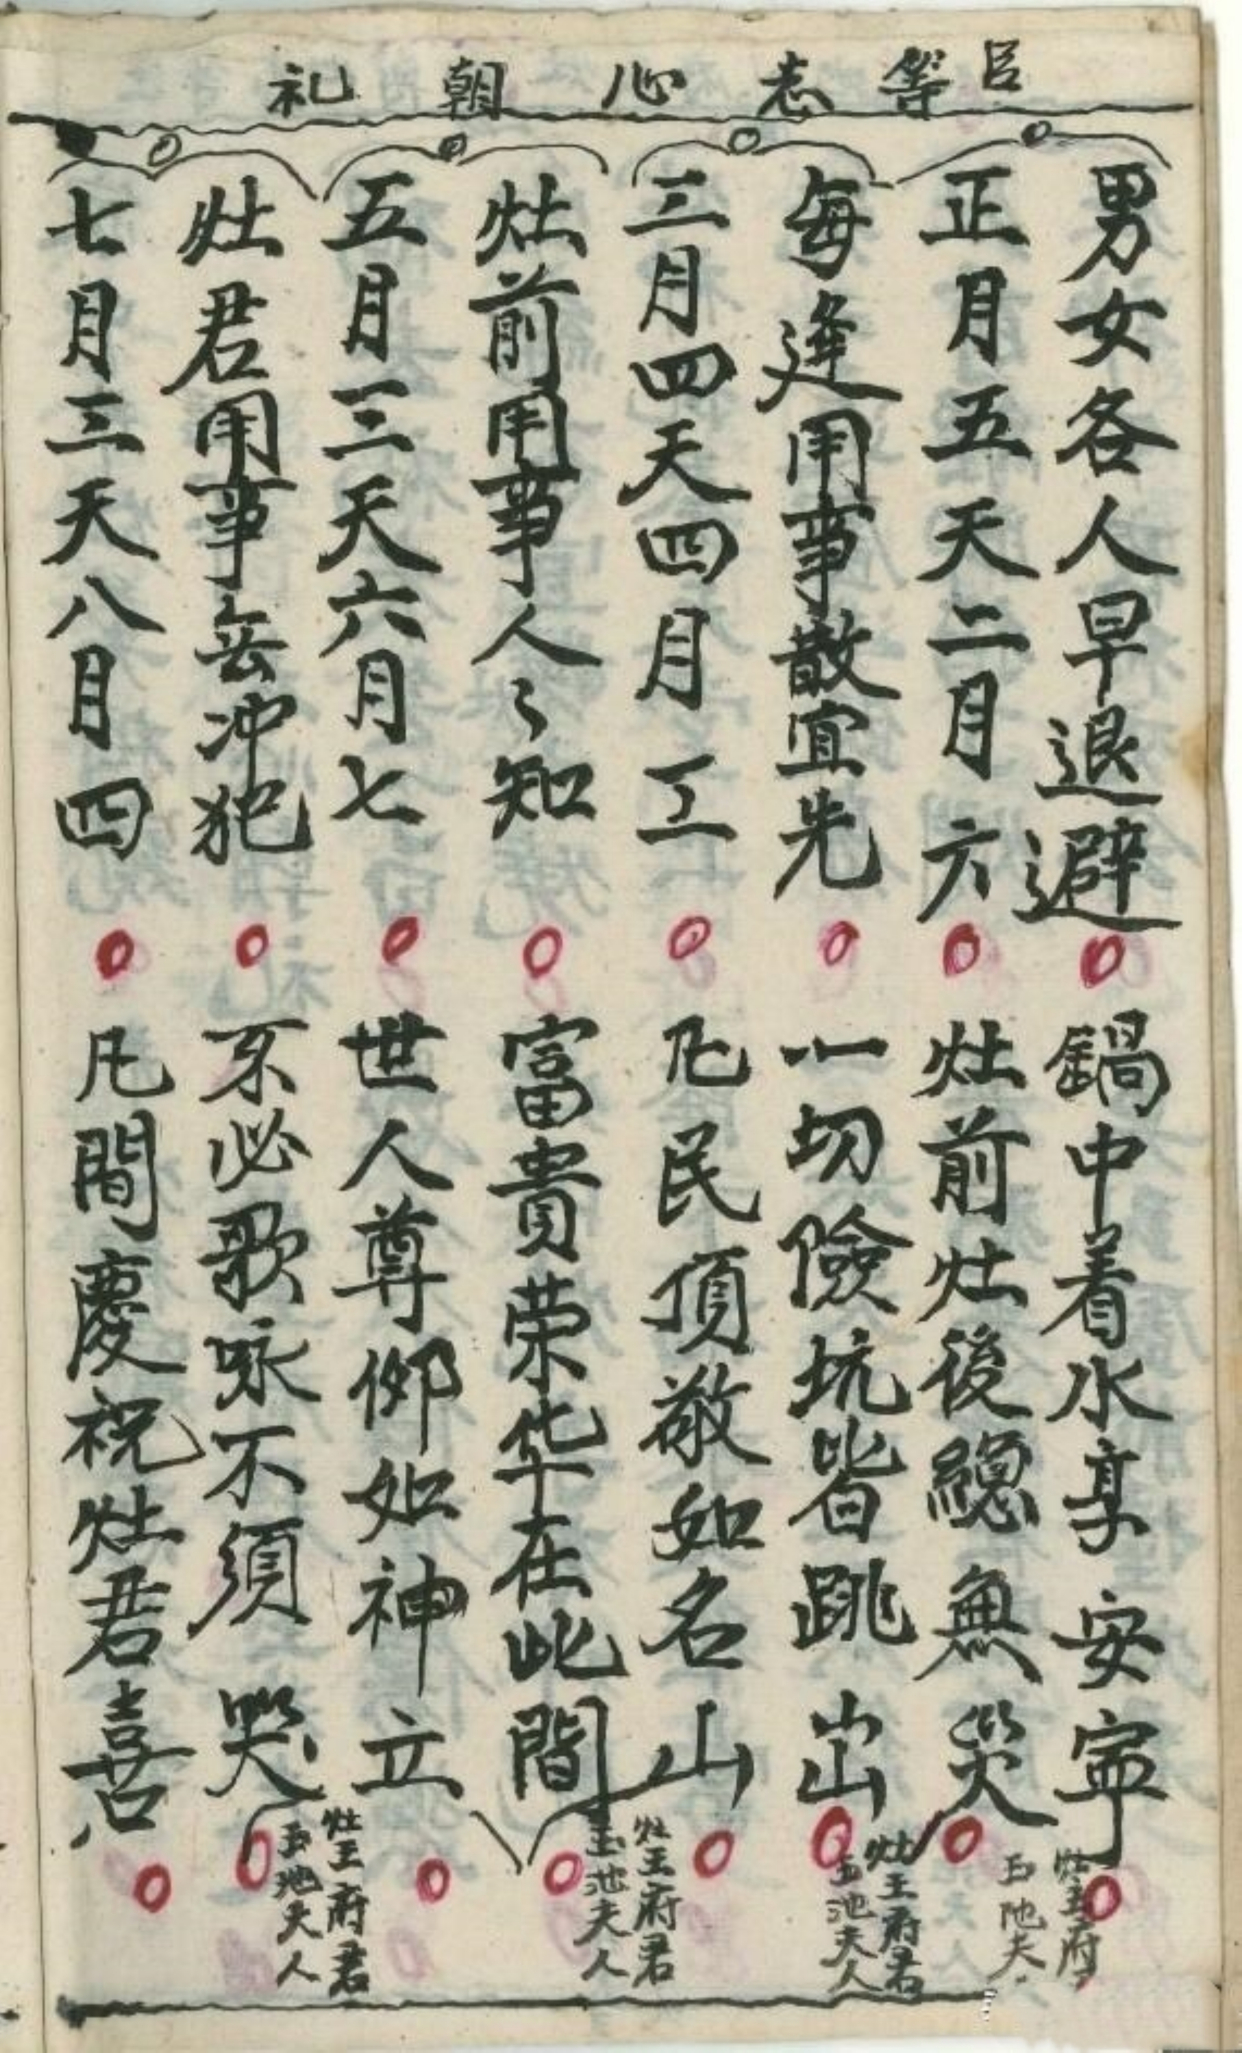 臣等志心朝礼
男女各人早退避 鍋中着水享安寍
正月五天二月六 灶前灶後總無災
每逢用事散宜先 一切險坑皆跳出
三月四天四月工 凡民頂敬如名山
灶前用事人々知 富貴荣华在此間
五月三天六月七 世人尊仰如神立
灶君用事無冲犯 不必歌咏不須哭
七月三天八月四 凡間慶祝灶君喜
灶王府
玉池夫
灶王府君
玉池夫人
灶王府君
玉池夫人
灶王府君
玉池夫人